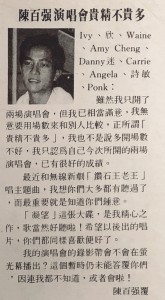 陳百强演唱會貴精不貴多
Ivy、欣、Waine
、Amy Cheng、
Danny迷、Carrie
、Angela、詩敏
、Ponk：
雖然我只開了
兩場演唱會，但我已相當滿意，我無
意要用場數來和別人比較，正所謂「
貴精不貴多」，我也不是說多開場數
不好，我只認為自己今次所開的兩場
演唱會，已有很好的成績。
最近和無綫新劇「鑽石王老五」
唱主題曲，我想你們大多都有聽過了
，而最重要就是知道你們鍾意。
「凝望」這張大碟，是我精心之
作，歌當然好聽啦！希望以後出的唱
片，你們都同樣喜歡便好了。
我的演唱會的錄影帶會不會在螢
光幕播出？這個暫時仍未能答覆你們
，因連我都不知道，或者會啦！
陳百强覆